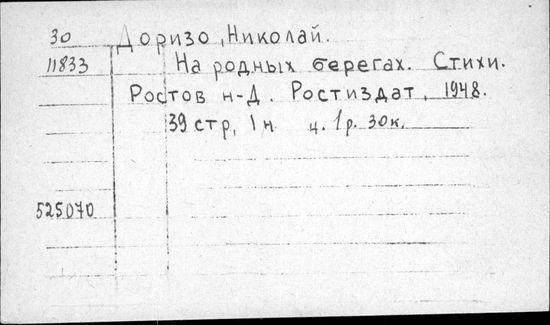 30 Доризо, Николай.
11833 На родных берегах. Стихи.
Ростов н-Д. Ростиздат, 1948.
39 стр, 1 н ц. 1 р. 30 к.
525070